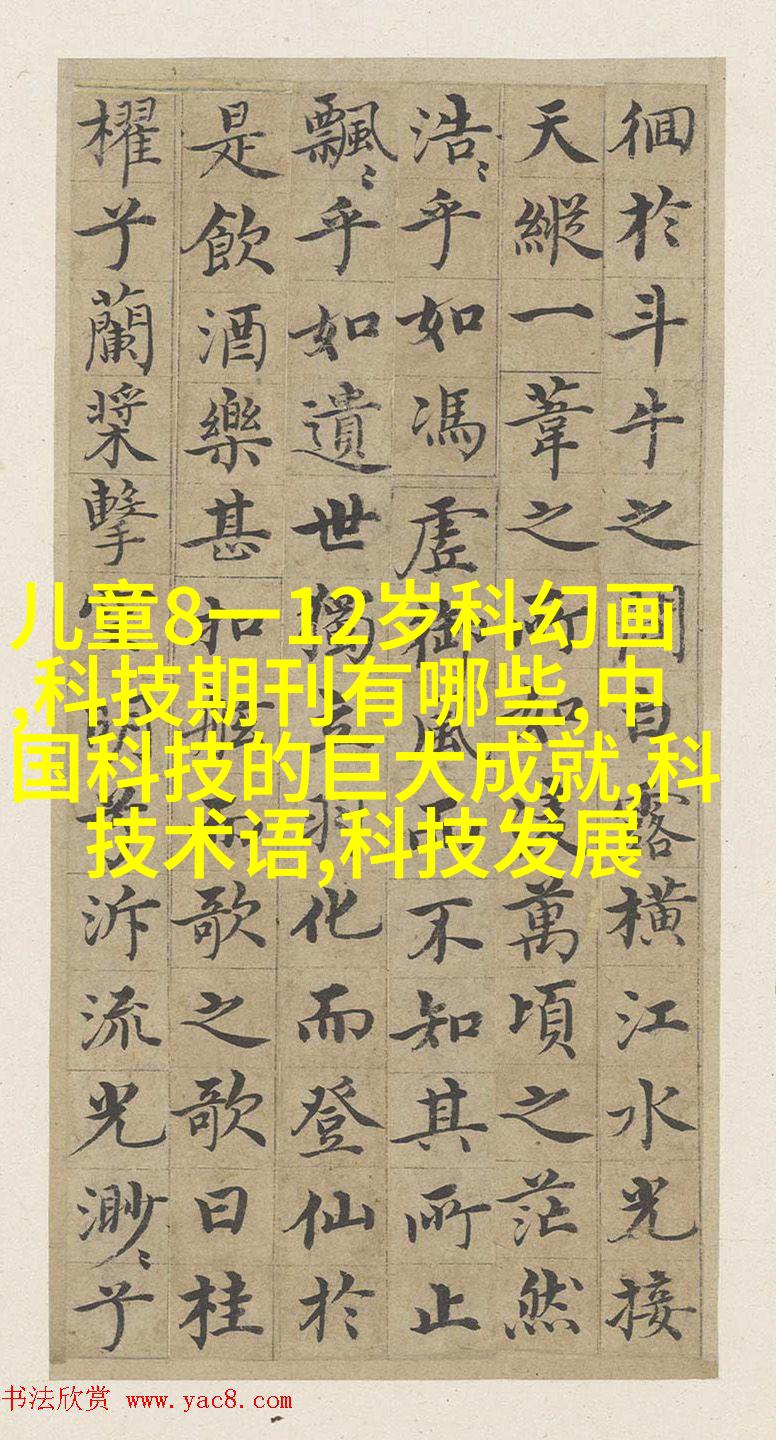 徊於斗牛之間白露橫江水光接
天縱一葦之所如凌萬頃之茫然
浩〻乎如馮虛御風而不知其所止
飄〻乎如遺世獨立羽化而登仙於
是飲酒樂甚扣舷而歌之歌曰桂
櫂兮蘭槳擊空明兮泝流光渺〻兮
儿童8一12岁科幻画
,科技期刊有哪些,中
国科技的巨大成就,科
技术语,科技发展
书法欣赏 www.yac8.com